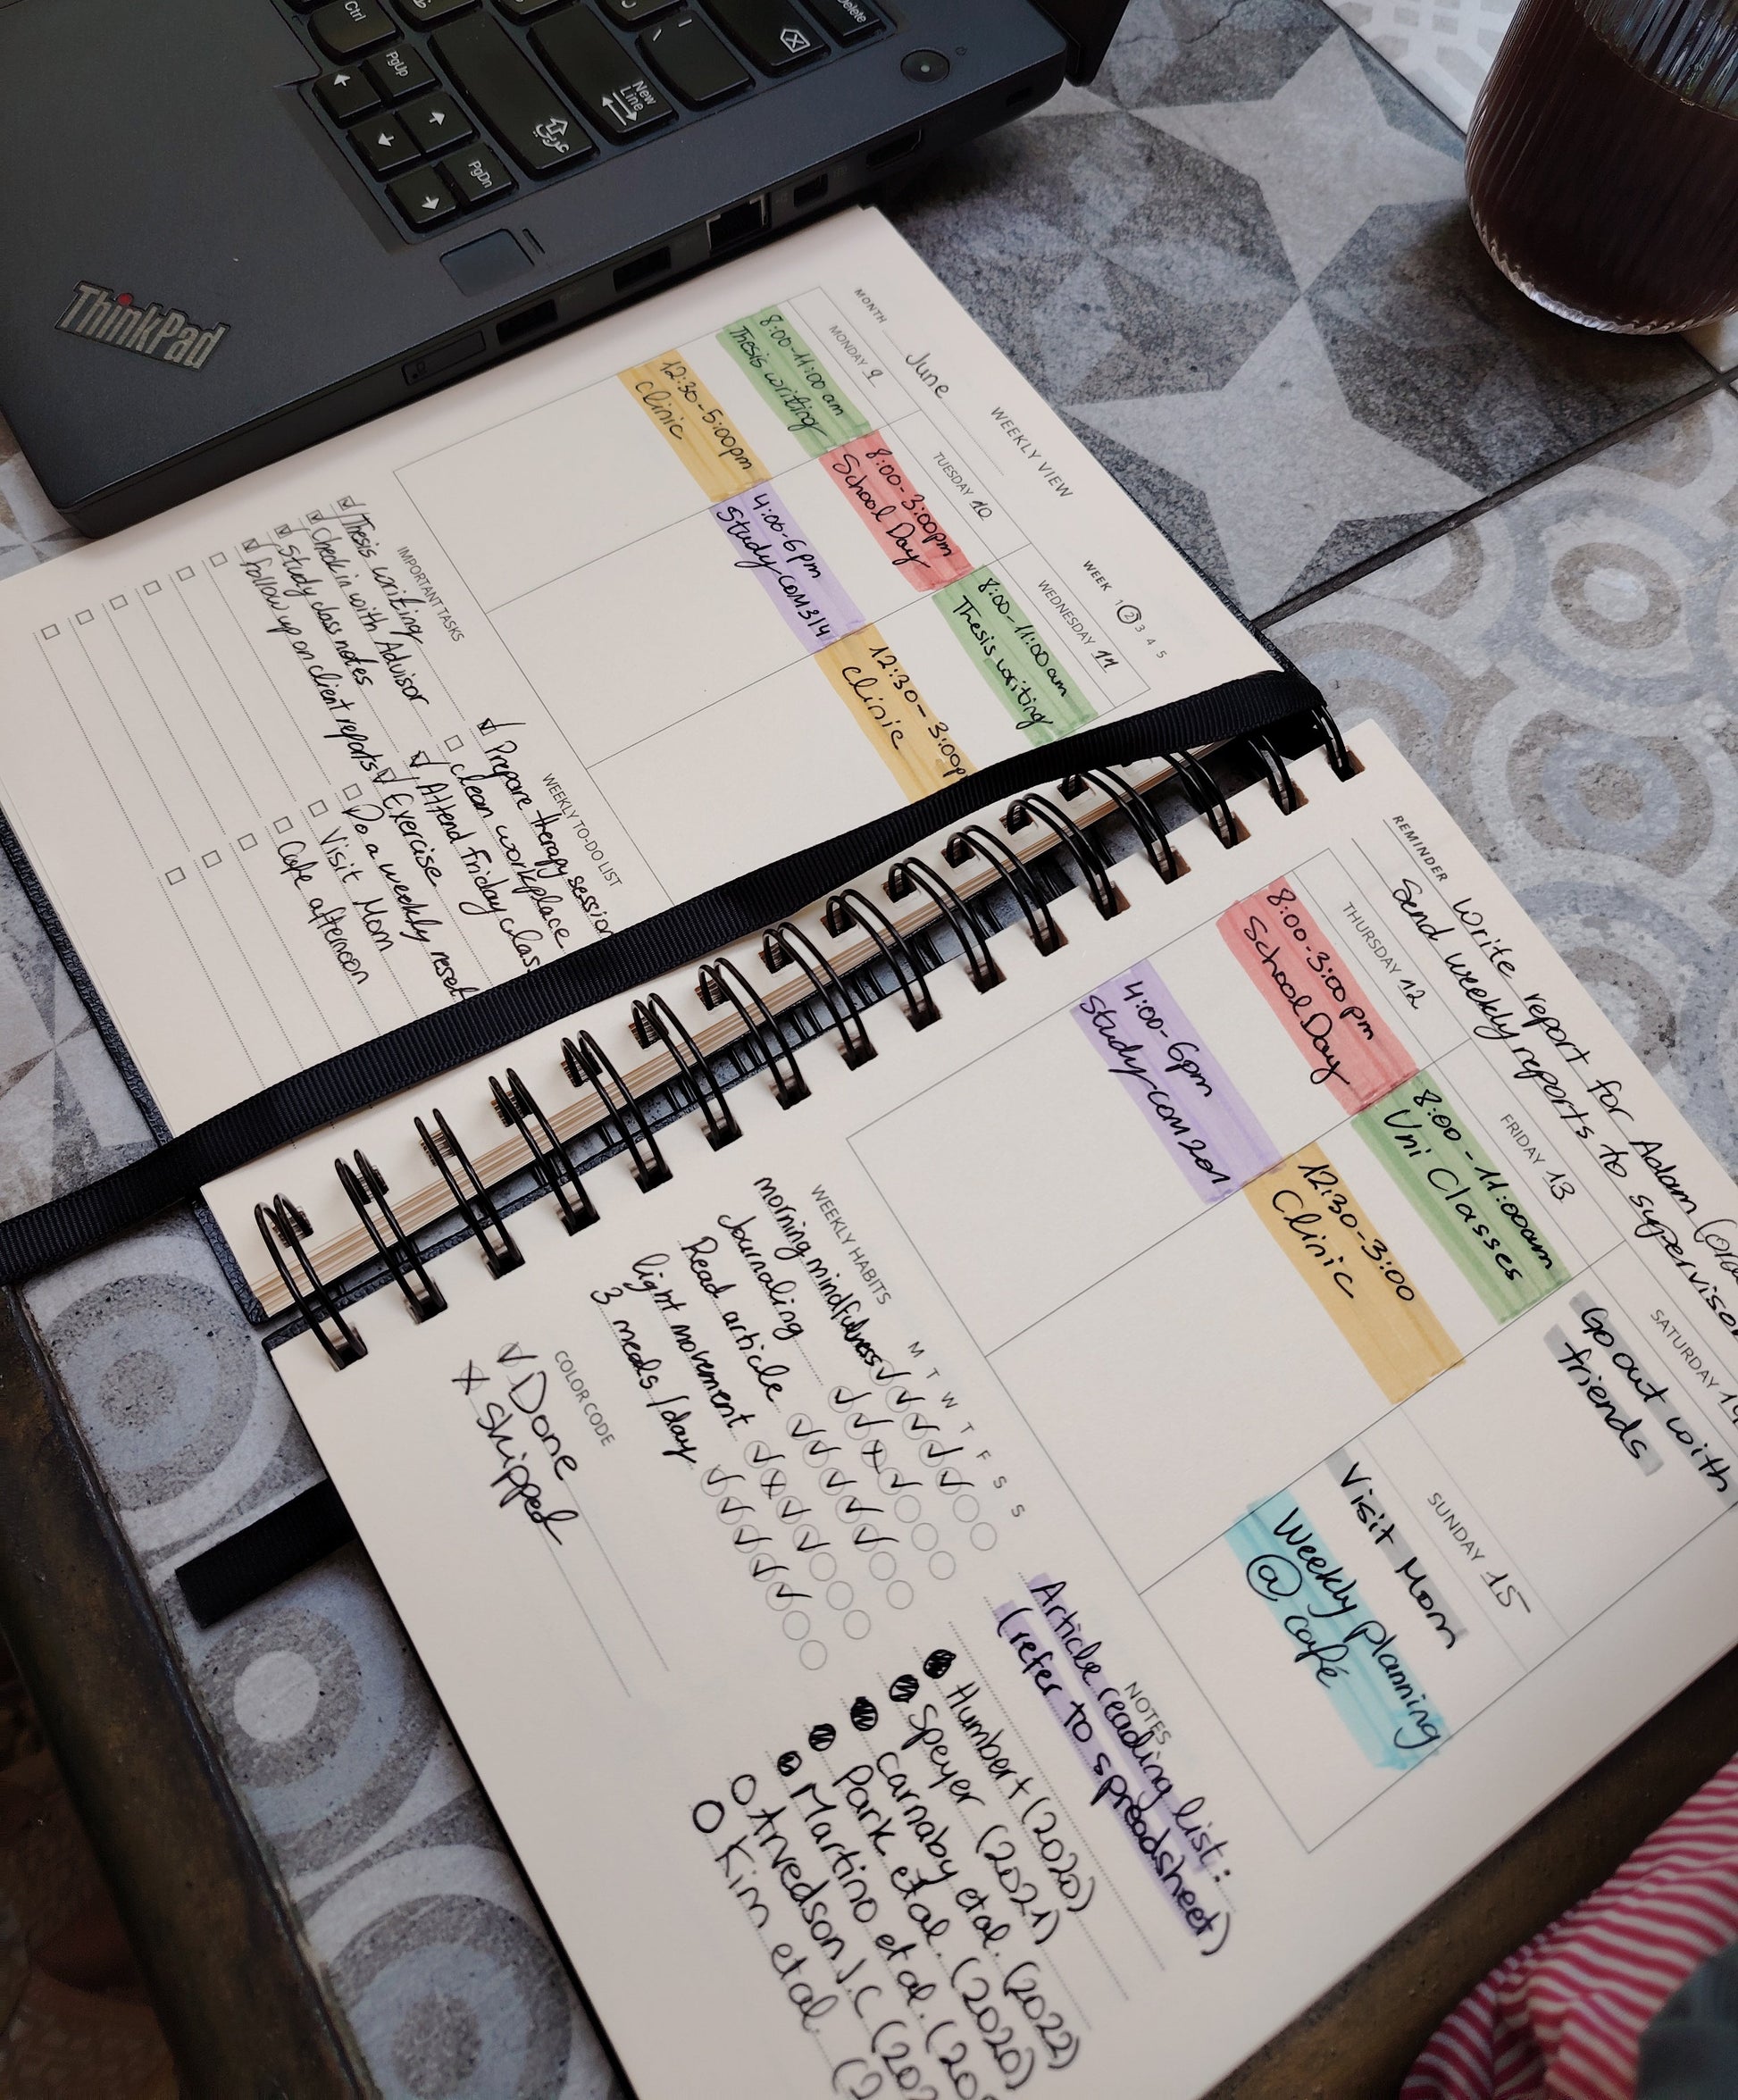 Ctrl
PgUp
PgDn
New
Line
Delete
ThinkPad
MONTH June
WEEKLY VIEW
WEEK 1 2 3 4 5
MONDAY 9
8:00-11:00 am
Thesis writing
12:30-5:00pm
clinic
TUESDAY 10
8:00-3:00pm
School Day
4:00-6pm
Study COM314
WEDNESDAY 11
8:00-11:00am
Thesis writing
12:30-3:00p
clinic
IMPORTANT TASKS
Thesis writing
Check in with Advisor
Study class notes
follow up on client reports
WEEKLY TO-DO LIST
Prepare therapy session
clean workplace
Attend Friday class
Exercise
Do a weekly reset
Visit Mom
Cafe afternoon
REMINDER Write report for Adam
Send weekly reports to supervisor
THURSDAY 12
8:00-3:00pm
School Day
4:00-6pm
Study COM201
FRIDAY 13
8:00-11:00am
Uni Classes
12:30-3:00
Clinic
SATURDAY
Go out with
friends
SUNDAY 15
Visit Mom
Weekly Planning
@ café
WEEKLY HABITS M T W T F S S
morning mindfulness
Journaling
Read article
light movement
3 meals/day
COLOR CODE
✓ Done
x Skipped
NOTES
Article reading list:
(refer to spreadsheet)
Humbert (2020)
Speyer (2021)
Carnaby et al. (2022)
Park et al. (2020)
Martino et al.
Arvedson J.C
Kim et al.